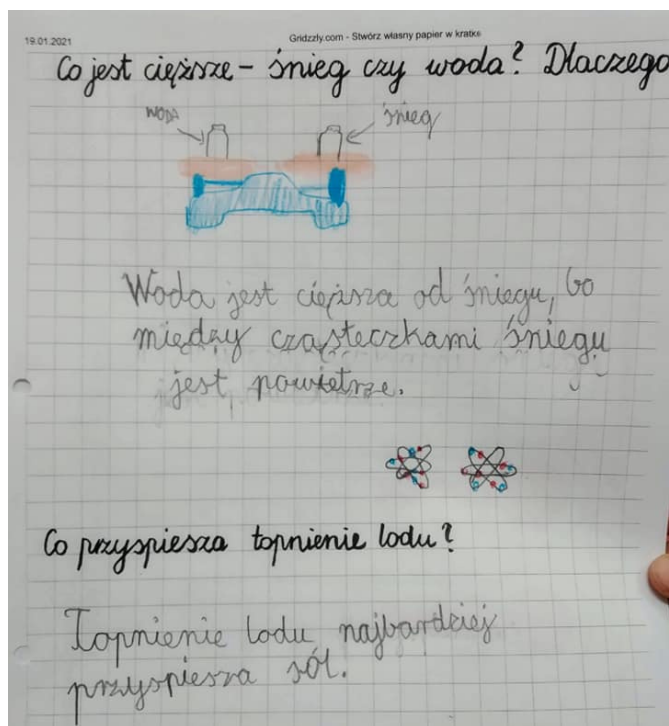 19.01.2021
Gridzzly.com - Stwórz własny papier w kratkę
Co jest cięższe - śnieg czy woda? Dlaczego
WODA
śnieg
Woda jest cięższa od śniegu, bo
między cząsteczkami śniegu
jest powietrze.
Co przyspiesza topnienie lodu?
Topnienie lodu najbardziej
przyspiesza sól.